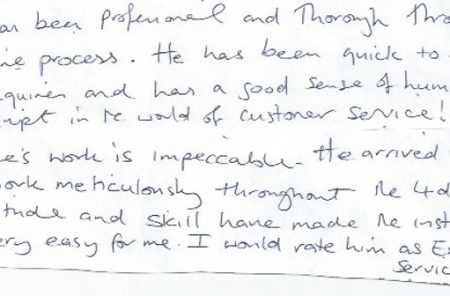 has been professional and Thorough Thro
he process. He has been quick to
quiries and has a good sense of hum
ript in the world of customer service!
e's work is impeccable. He arrived
ork meticulously throughout the 4d
itude and skill have made the inst
ery easy for me. I would rate him as Ex
Servic